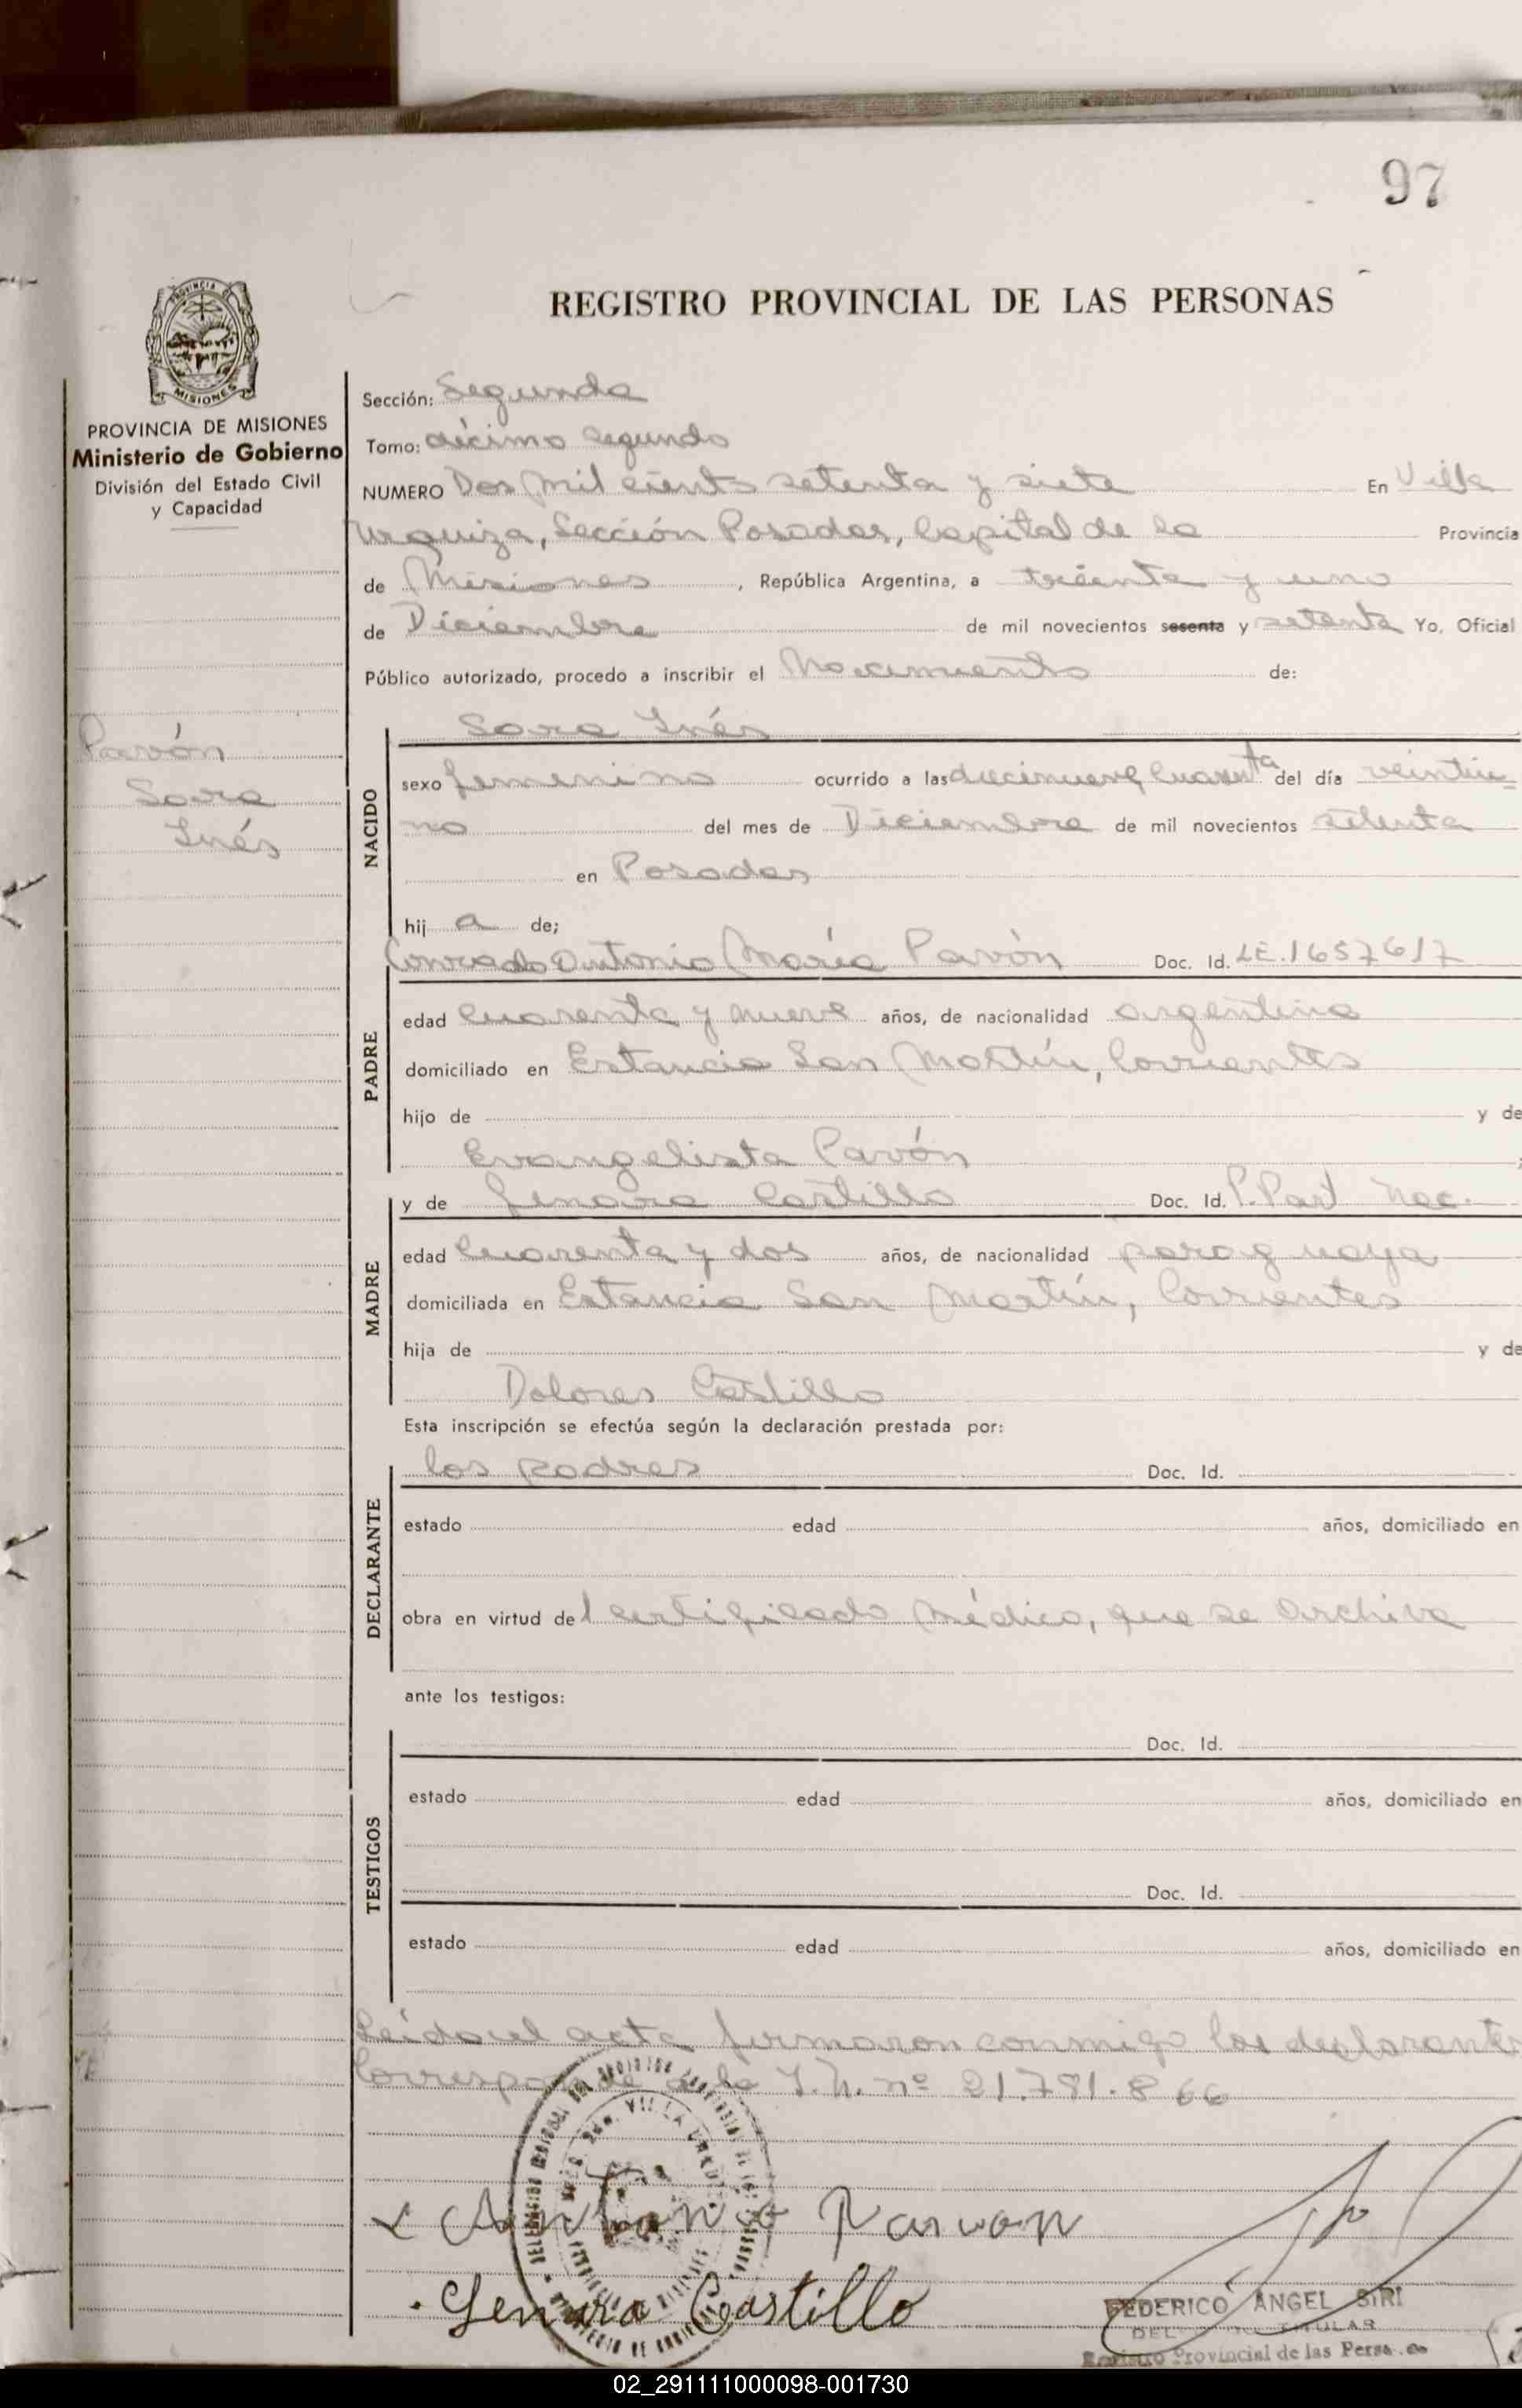 97
REGISTRO PROVINCIAL DE LAS PERSONAS
PROVINCIA DE MISIONES
Ministerio de Gobierno
División del Estado Civil
y Capacidad
Pavón
Sara
Inés
Sección: Segunda
Tomo: décimo segundo
NUMERO Dos mil ciento setenta y siete En Villa
Urquiza, Sección Posadas, Capital de la Provincia
de Misiones, República Argentina, a treinta y uno
de Diciembre de mil novecientos sesenta y setenta Yo, Oficial
Público autorizado, procedo a inscribir el Nacimiento de:
Sara Inés
NACIDO
sexo femenino ocurrido a las diecinueve, cuarenta del día veintiu-
no del mes de Diciembre de mil novecientos setenta
en Posadas
hija de;
Conrado Antonio María Pavón Doc. Id. LE. 1657617
PADRE
edad cuarenta y nueve años, de nacionalidad argentina
domiciliado en Estancia San Martín, Corrientes
hijo de y de
Evangelista Pavón
y de Genara Castillo Doc. Id. P. Part Nac.
MADRE
edad cuarenta y dos años, de nacionalidad paraguaya
domiciliada en Estancia San Martín, Corrientes
hija de y de
Dolores Castillo
Esta inscripción se efectúa según la declaración prestada por:
los padres Doc. Id.
DECLARANTE
estado edad años, domiciliado en
obra en virtud del certificado médico, que se archiva
ante los testigos:
Doc. Id.
TESTIGOS
estado edad años, domiciliado en
Doc. Id.
estado edad años, domiciliado en
Leída el acta firmaron conmigo los declarantes
Corresponde a la I.N. nº 21.781.866
Antonio Pavon
Genara Castillo
FEDERICO ANGEL SIRI
Registro Provincial de las Personas
02_291111000098-001730